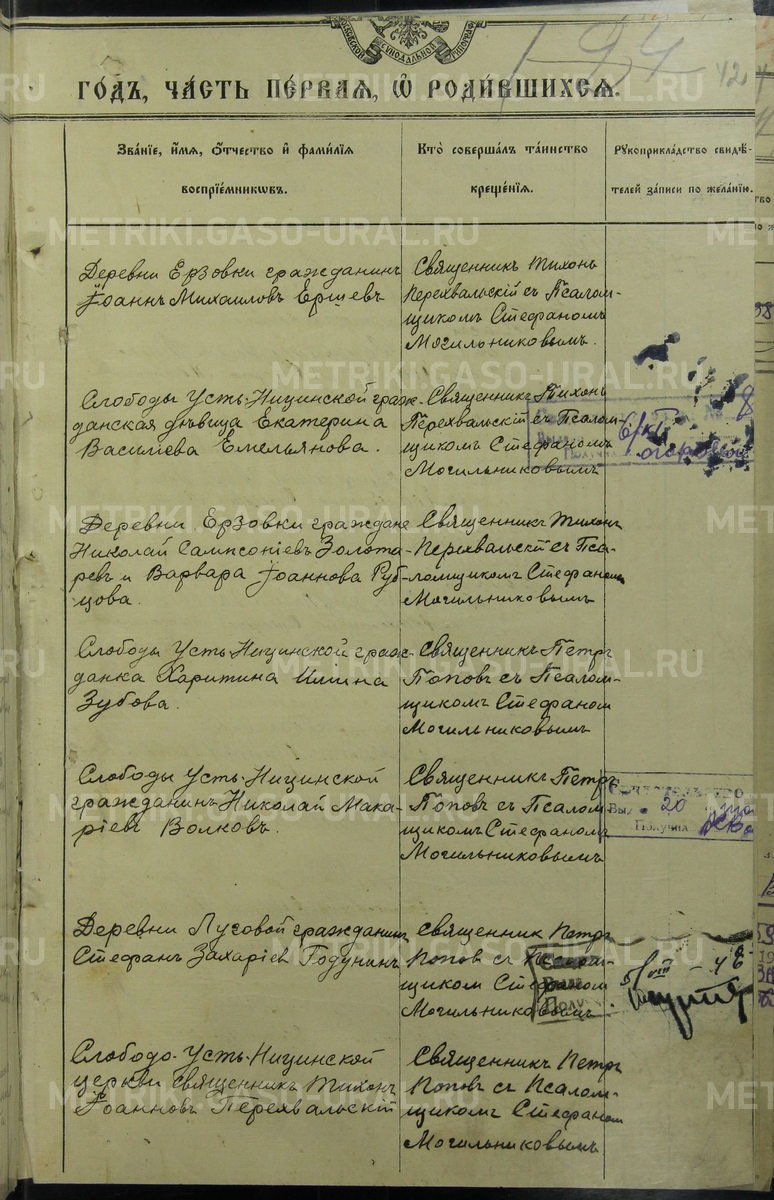 СѴНОДАЛЬНОЙ
194
ГО́ДЪ, ЧА́СТЬ ПЕ́РВАЯ, Ѡ҆ РОДИ́ВШИХСЯ.
Зва́нїе, и҆́мя, ѻ҆́тчество и҆ фами́лїя
воспрїе́мниковъ.
Кто̀ соверша́лъ та́инство
креще́нїя.
Рукоприкла́дство свидѣ́-
телей за́писи по жела́нїю.
Деревни Ерзовки гражданинъ
Іоаннъ Михаиловъ Ершевъ
Священникъ Тихонъ
Перехвальскій съ Псалом-
щикомъ Стефаномъ
Могильниковымъ.
Слободы Усть-Ницинской граж-
данская дѣвица Екатерина
Василіева Емельянова.
Священникъ Тихонъ
Перехвальскій съ Псалом-
щикомъ Стефаномъ
Могильниковымъ
Деревни Ерзовки граждане
Николай Сампсоніевъ Золота-
ревъ и Варвара Іоаннова Руб-
цова.
Священникъ Тихонъ
Перехвальскій съ Пса-
ломщикомъ Стефаномъ
Могильниковымъ
Слободы Усть-Ницинской граж-
данка Харитина Илиина
Зубова.
Священникъ Петръ
Поповъ съ Псалом-
щикомъ Стефаном
Могильниковымъ
Слободы Усть-Ницинской
гражданинъ Николай Мака-
ріевъ Волковъ.
Священникъ Петръ
Поповъ съ Псалом-
щикомъ Стефаномъ
Могильниковымъ
20
Получил
Деревни Луговой гражданинъ
Стефанъ Захаріев Годунинъ
Священник Петръ
Попов съ Псалом-
щиком Стефаном
Могильниковымъ.
Слободо-Усть-Ницинской
церкви священникъ Тихонъ
Іоанновъ Перехвальскій
Священникъ Петръ
Попов съ Псалом-
щикомъ Стефаном
Могильниковымъ
METRIKI.GASO-URAL.RU